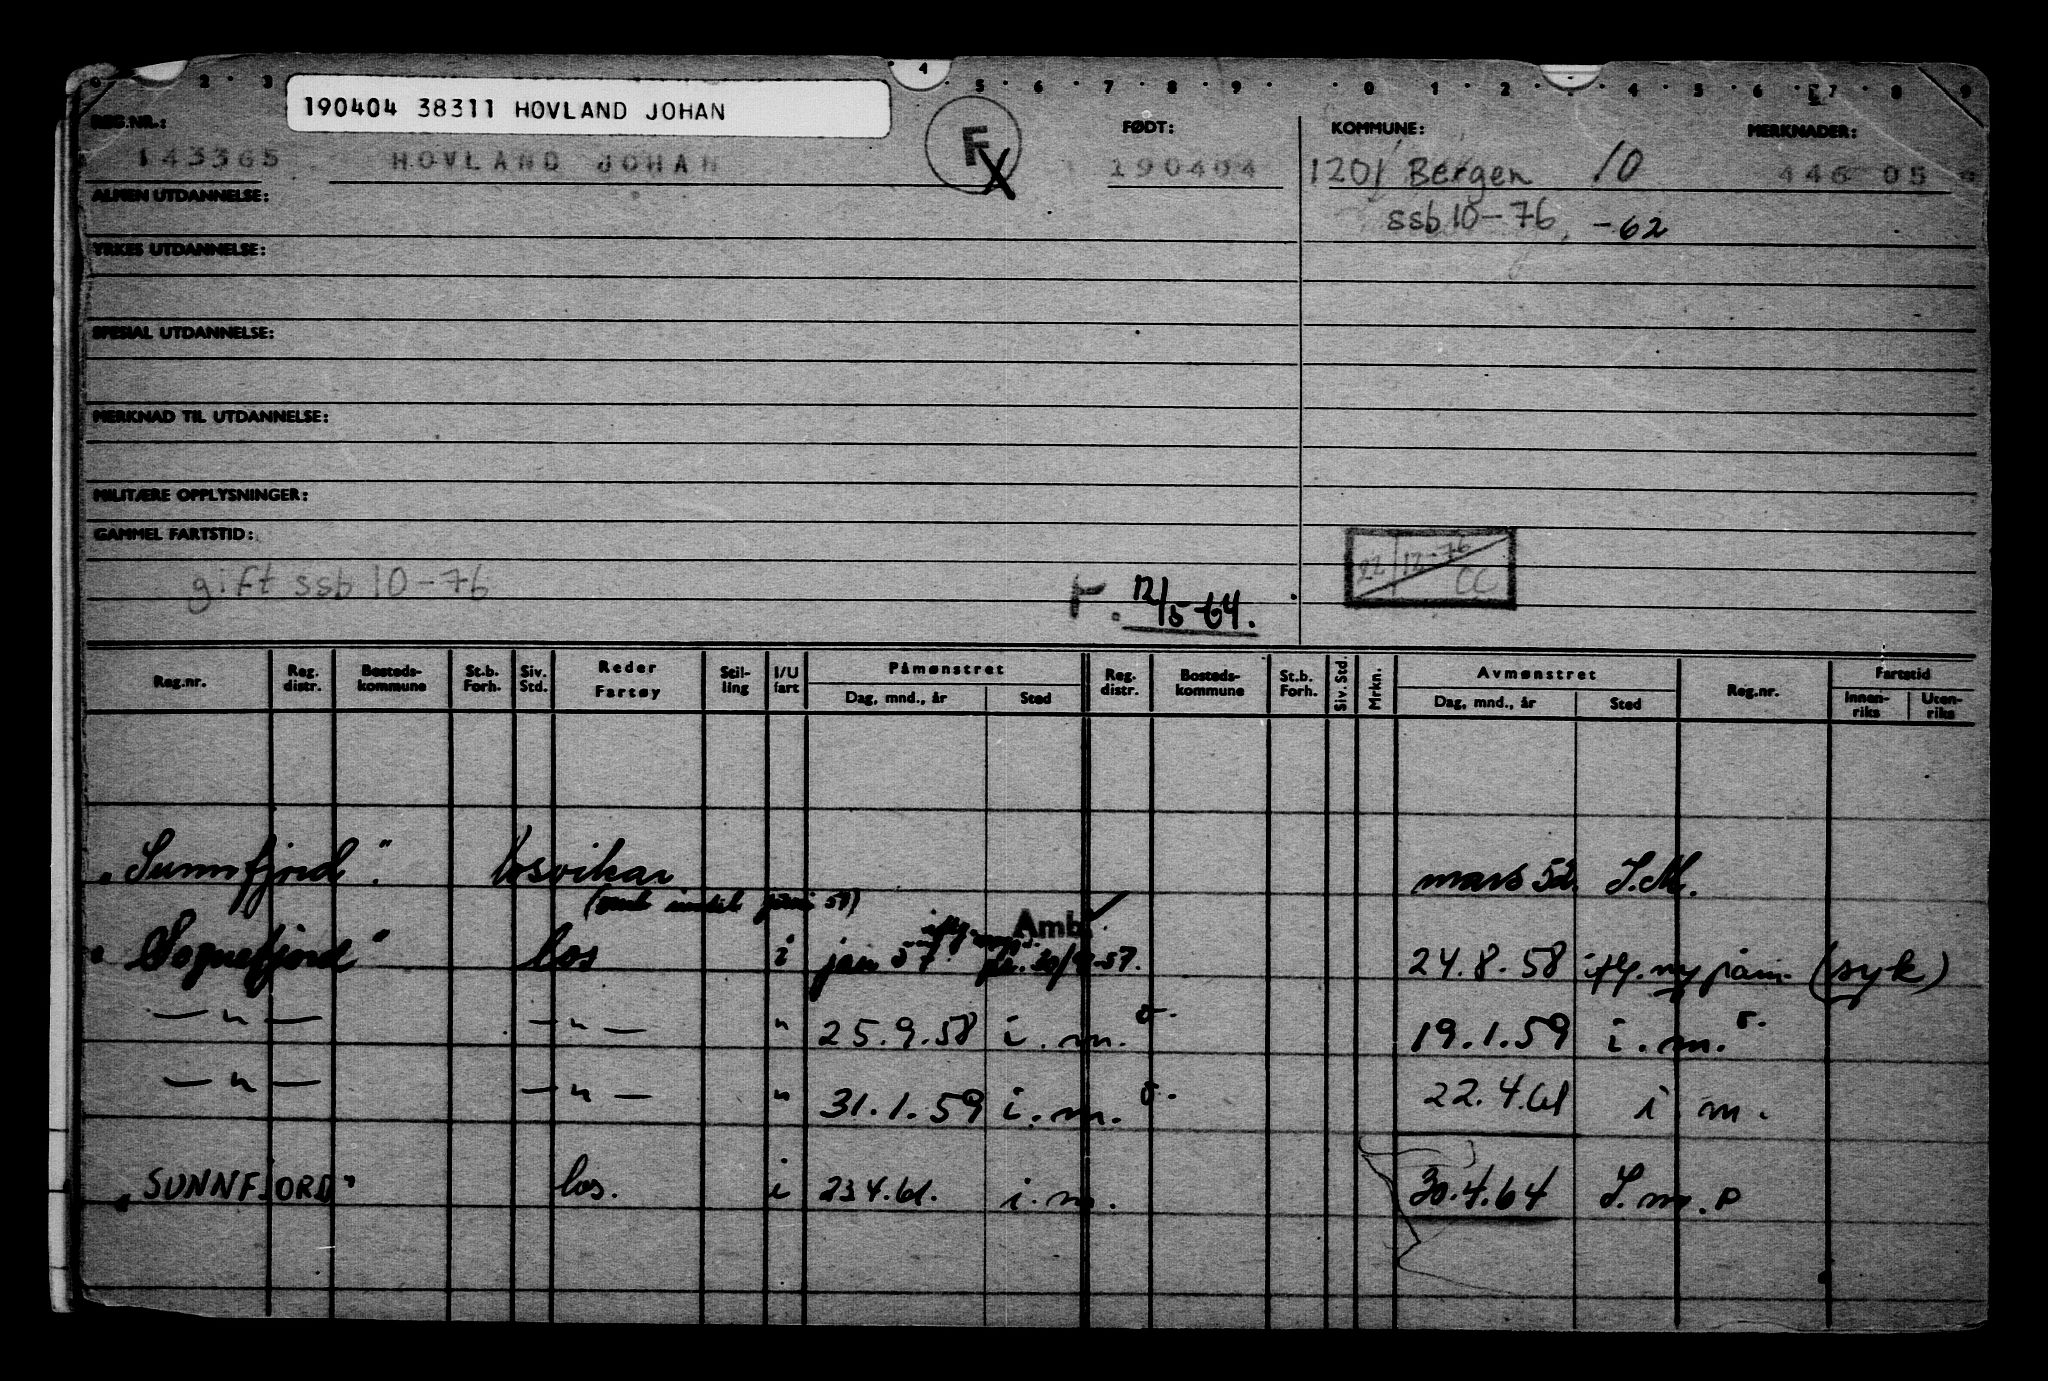 0 2 3 4 5 6 7 8 9 0 1 2 4 5 6 7 8 9
190404 38311 HOVLAND JOHAN
REG.NR.: FØDT: KOMMUNE: MERKNADER:
143365 HOVLAND JOHAN F X 190404 1201 Bergen 10 446 05
ALMEN UTDANNELSE:
ssb 10-76, -62
YRKES UTDANNELSE:
SPESIAL UTDANNELSE:
MERKNAD TIL UTDANNELSE:
MILITÆRE OPPLYSNINGER:
GAMMEL FARTSTID:
22/12-76 CC
gift ssb 10-76
12/5-64.
Reg.nr. Reg. distr. Bosteds-kommune St.b. Forh. Siv. Std. Reder Fartøy Stil-ling I/U fart Påmønstret Dag, mnd., år Sted Reg. distr. Bosteds-kommune St.b. Forh. Siv. Std. Mrkn. Avmønstret Dag, mnd., år Sted Reg.nr. Fartstid Innen-riks Uten-riks
"Sunnfjord". losvikar mars 52. I.M.
Amb.
"Sognefjord" los i jan 57 24.8.58 iflg. ny påm. (syk)
— " — — " — " 25.9.58 i.m. 19.1.59 i.m.
— " — — " — " 31.1.59 i.m. 22.4.61 i m.
"SUNNFJORD" los. i 23 4.61. i.m. 30.4.64 I.m.P